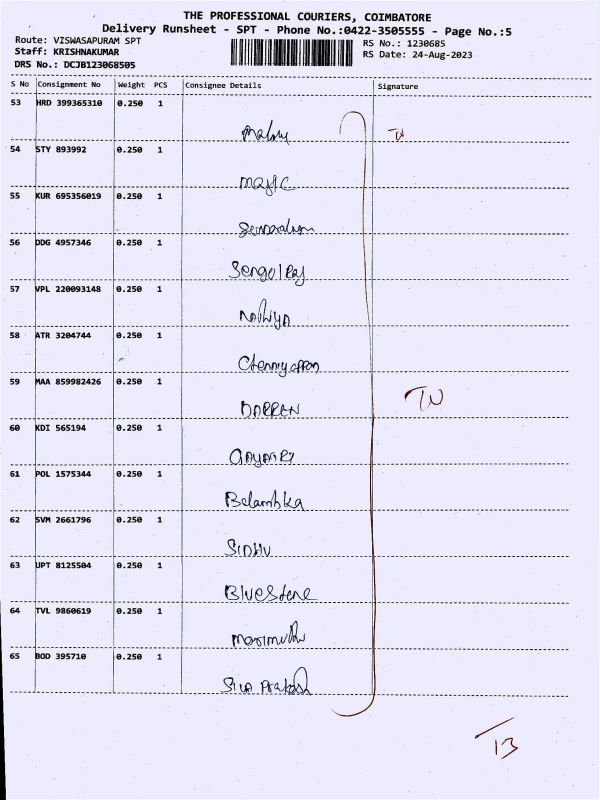 THE PROFESSIONAL COURIERS, COIMBATORE
Delivery Runsheet - SPT - Phone No.:0422-3505555 - Page No.:5
Route: VISWASAPURAM SPT
Staff: KRISHNAKUMAR
DRS No.: DCJB123068505
RS No.: 1230685
RS Date: 24-Aug-2023
S No Consignment No Weight PCS Consignee Details Signature
53 HRD 399365310 0.250 1
54 STY 893992 0.250 1
Magic
55 KUR 695356019 0.250 1
56 DDG 4957346 0.250 1
57 VPL 220093148 0.250 1
58 ATR 3204744 0.250 1
59 MAA 859982426 0.250 1
DARREN
TN
60 KDI 565194 0.250 1
GAYATRI
61 POL 1575344 0.250 1
Belambka
62 SVM 2661796 0.250 1
SIDHU
63 UPT 8125504 0.250 1
BlueStone
64 TVL 9860619 0.250 1
65 BOD 395710 0.250 1
Siva Prakash
13